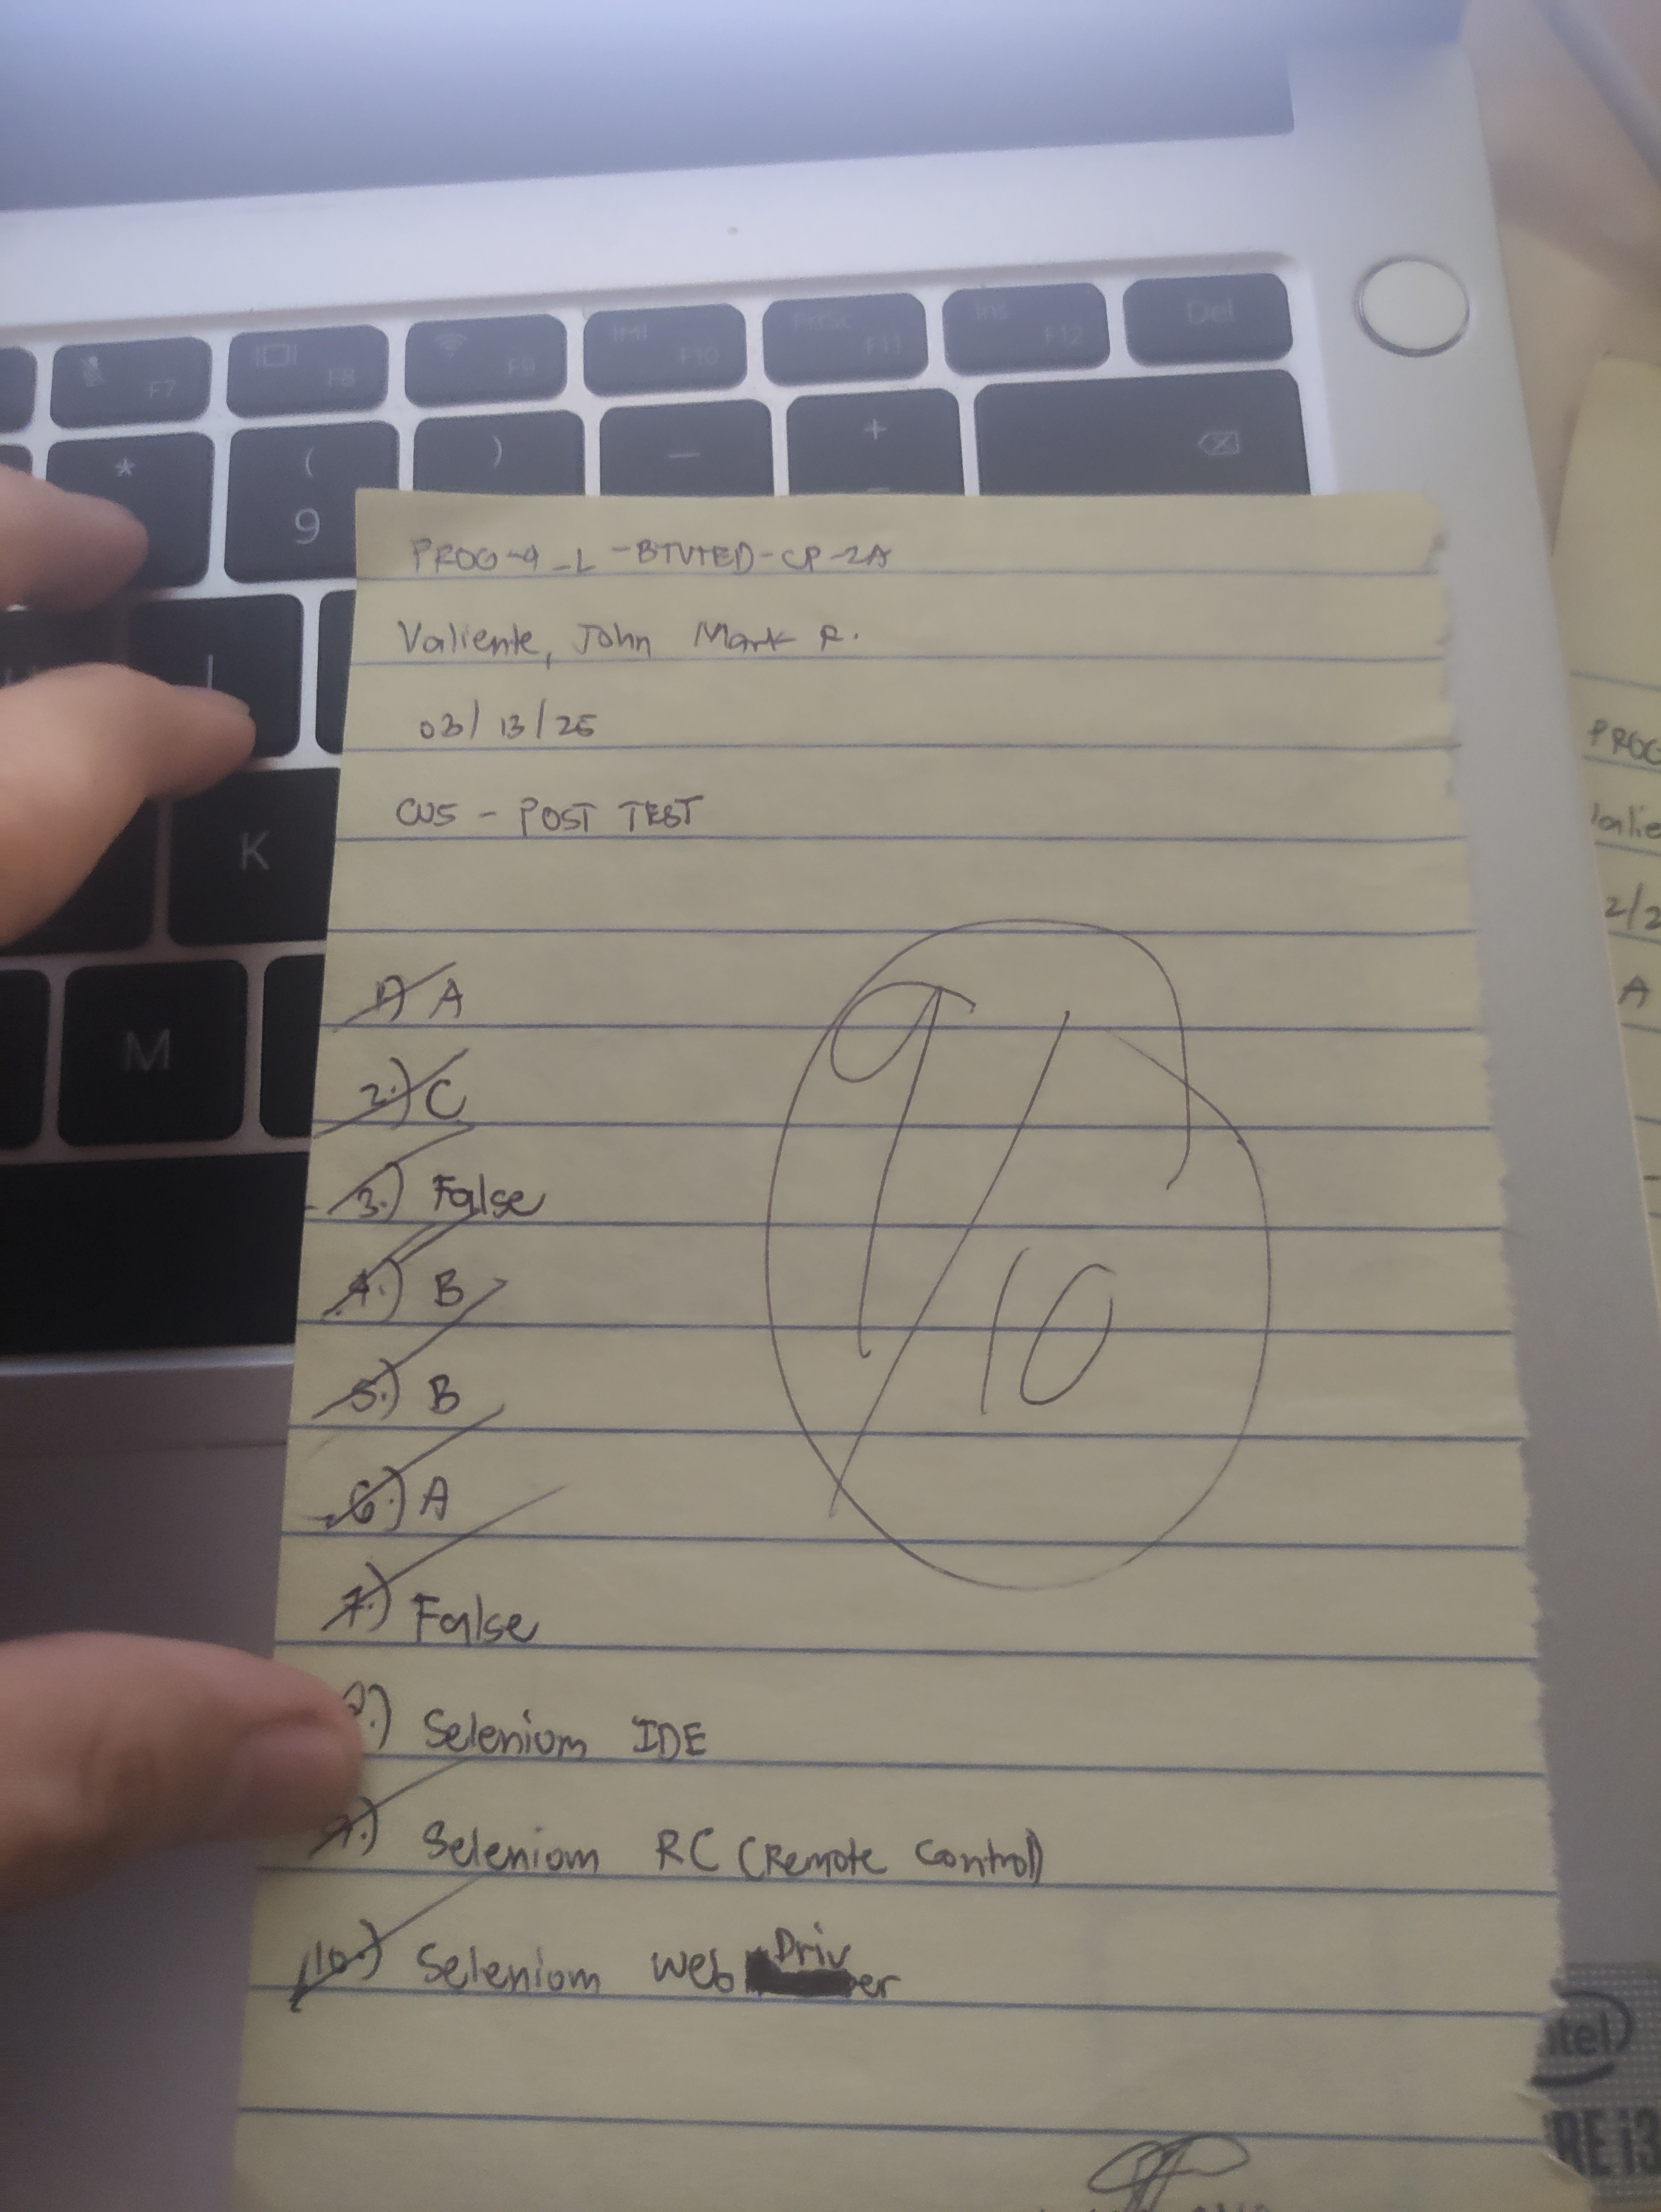 F7 F8 F9 F10 PrtSc F11 Ins F12 Del
* ( 9 ) — +
K
M
PROG-4_L-BTVTED-CP-2A
Valiente, John Mark R.
03/13/25
CU5 - POST TEST
1) A
2.) C
3.) False
4.) B
5.) B
6.) A
7.) False
8.) Seleniom IDE
9.) Seleniom RC (Remote Control)
10.) Seleniom Web Driver
9/10
PROG
2/2
A
intel
RE i3